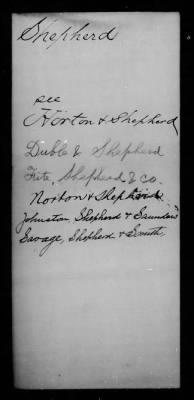 Shepherd
see
Horton & Shepherd
Duble & Shepherd
Fite, Shepherd & Co.
Norton & Shepherd
Johnston, Shepherd & Saunders
Savage, Shepherd & Smith